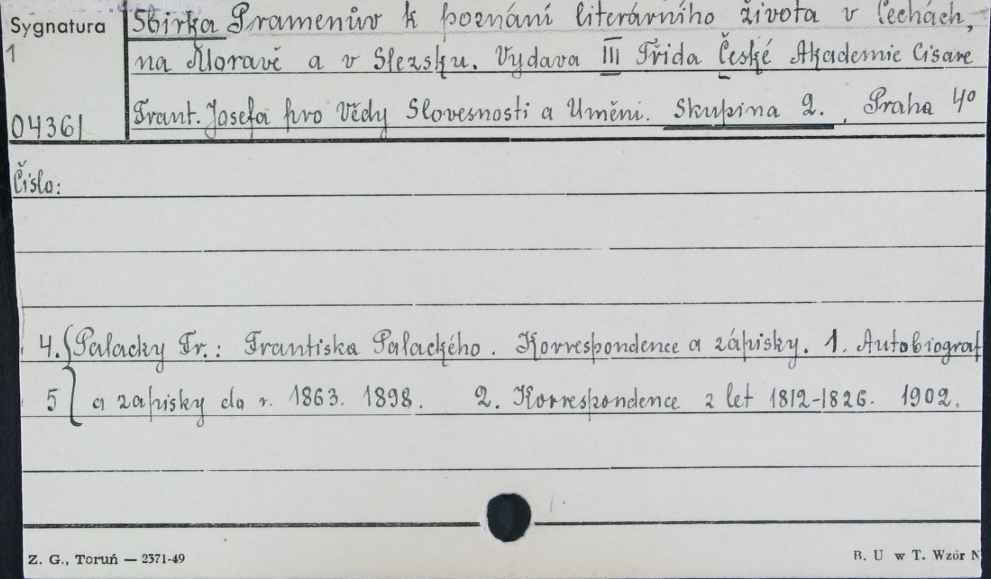 Sygnatura
1
04361
Sbirka Pramenův k poznání literárního života v Čechách,
na Moravě a v Slezsku. Vydava III Třida České Akademie Cisaře
Frant. Josefa pro Vědy Slovesnosti a Uměni. Skupina 2. , Praha 4º
Čislo:
4. { Palacky Fr.: Frantiska Palackého. Korrespondence a zápisky. 1. Autobiograf
5 { a zapisky do r. 1863. 1898. 2. Korrespondence z let 1812-1826. 1902.
Z. G., Toruń — 2371-49
B. U w T. Wzór N